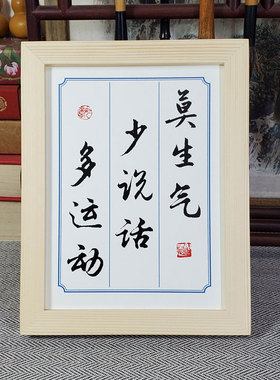 莫生气
少说话
多运动